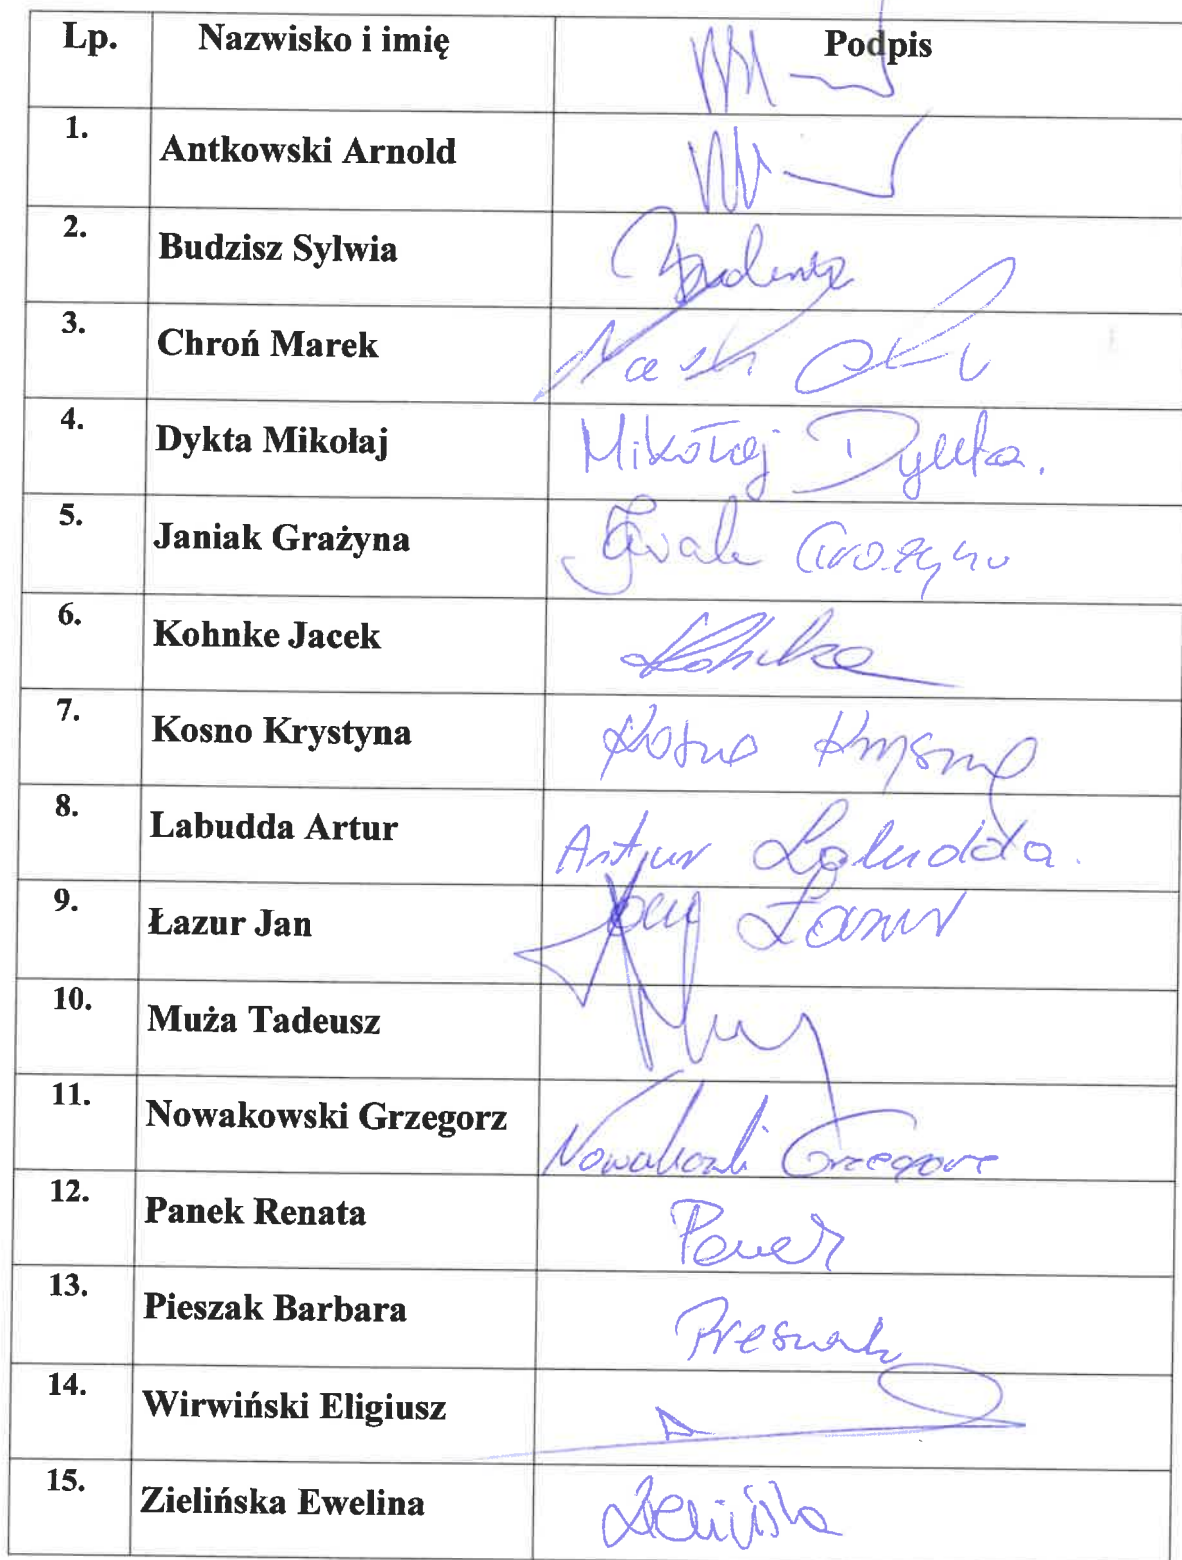 Lp. Nazwisko i imię Podpis
1. Antkowski Arnold
2. Budzisz Sylwia
3. Chroń Marek
4. Dykta Mikołaj Mikołaj Dykta.
5. Janiak Grażyna Grażyna
6. Kohnke Jacek Kohnke
7. Kosno Krystyna Kosno Krystyna
8. Labudda Artur Artur Labudda.
9. Łazur Jan Jan Łazur
10. Muża Tadeusz
11. Nowakowski Grzegorz Nowakowski Grzegorz
12. Panek Renata Panek
13. Pieszak Barbara Pieszak
14. Wirwiński Eligiusz
15. Zielińska Ewelina Zielińska